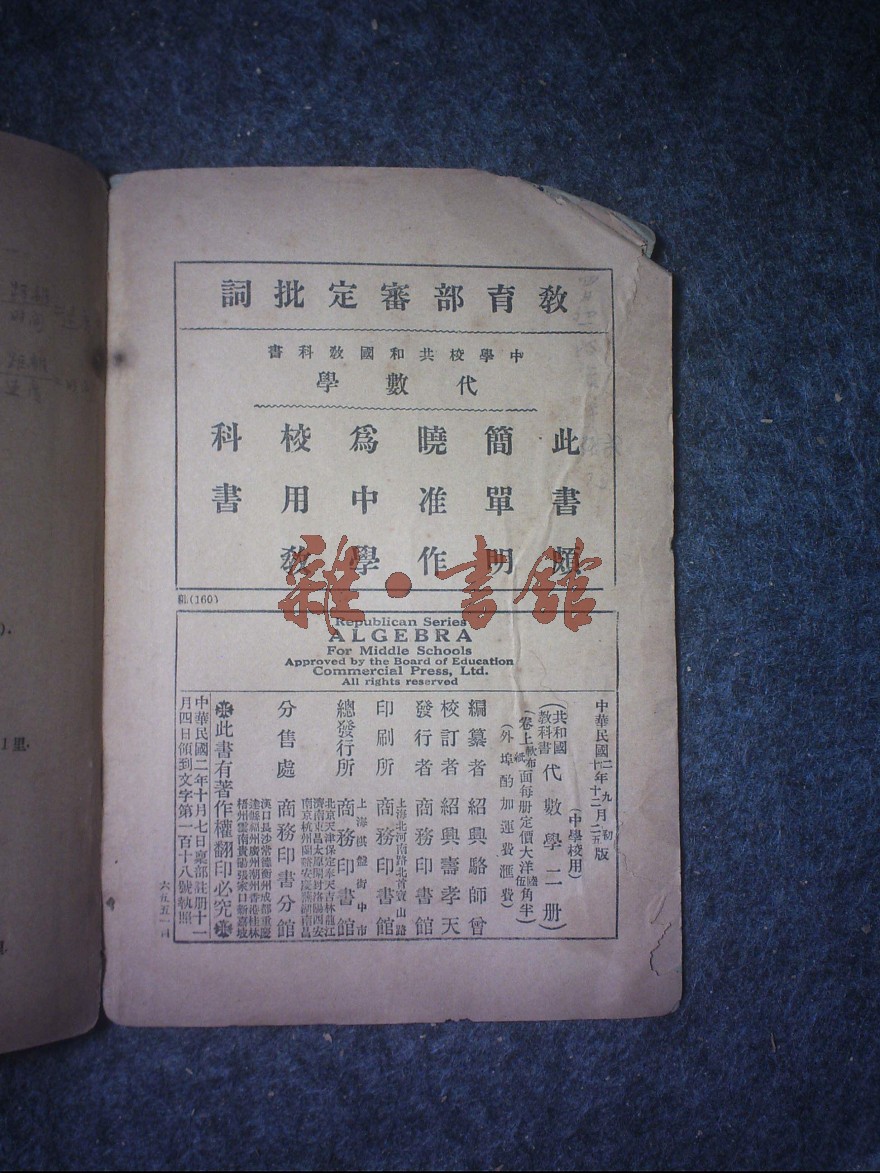 教育部審定批詞
中學校共和國教科書
代數學
此書頗
簡單明
曉准作
爲中學
校用教
科書
(160)
雜·書館
Republican Series
ALGEBRA
For Middle Schools
Approved by the Board of Education
Commercial Press, Ltd.
All rights reserved
中華民國二年九月初版
十年十二月二五版
(中學校用)
(共和國教科書)代數學二册
(卷上紙面每册定價大洋伍角半)
(外埠酌加運費滙費)
編纂者 紹興駱師曾
校訂者 紹興壽孝天
發行者 商務印書館
印刷所 上海北河南路北首寶山路 商務印書館
總發行所 上海棋盤街中市 商務印書館
分售處 北京天津保定奉天吉林龍江
濟南東昌太原開封洛陽西安
南京杭州蘭谿安慶蕪湖南昌
漢口長沙常德衡州成都重慶
達縣福州廣州潮州香港桂林
梧州雲南貴陽張家口新嘉坡
商務印書分館
此書有著作權翻印必究
中華民國二年十月七日禀部註册十一
月四日領到文字第一百十八號執照
1里.